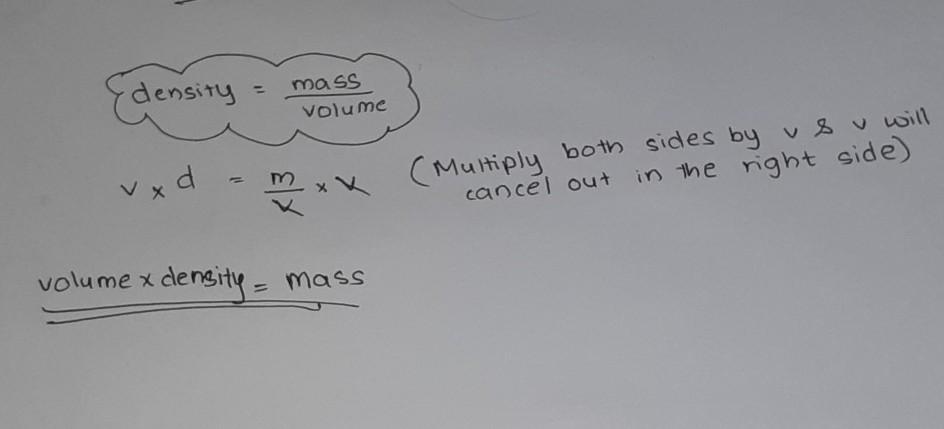 density = mass/volume
v x d = m/v x v (Multiply both sides by v & v will
cancel out in the right side)
volume x density = mass